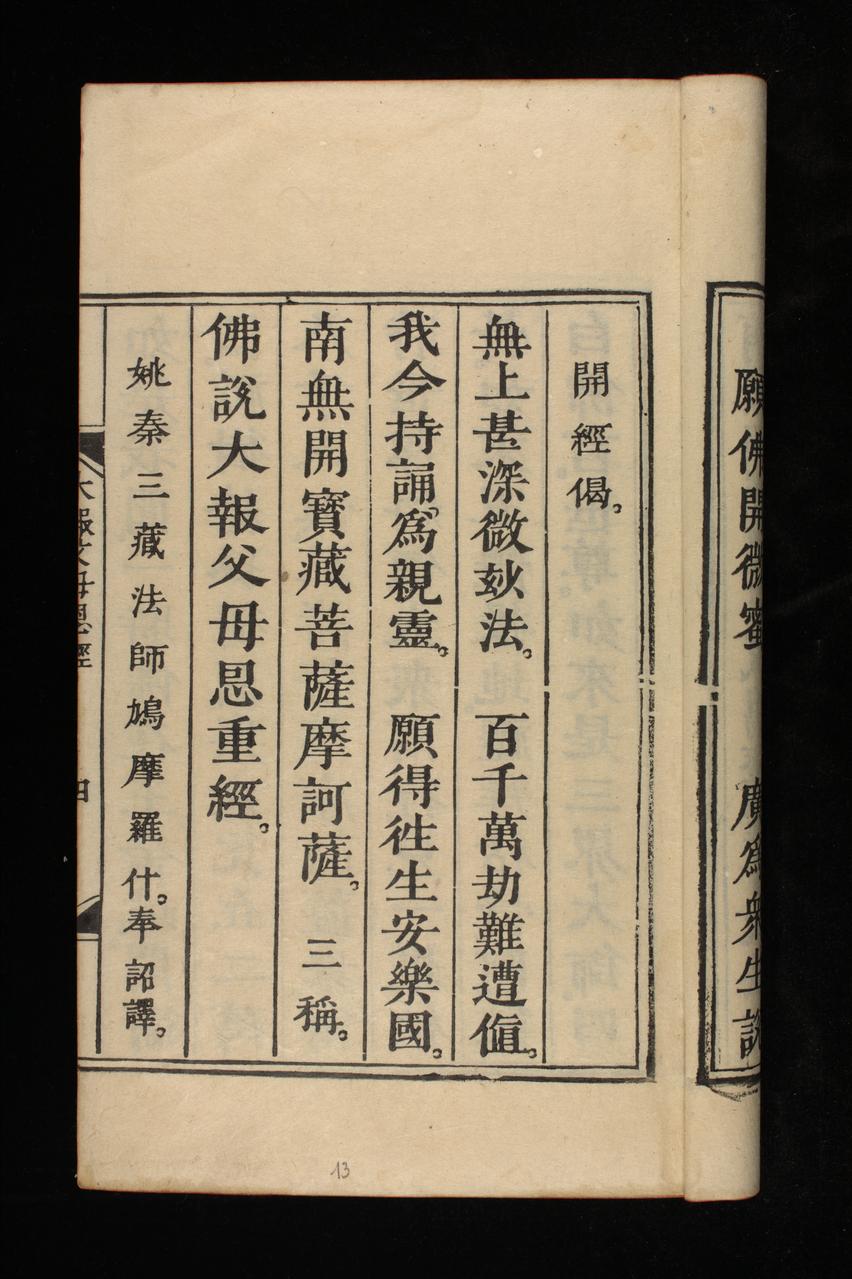 願佛開微密　廣爲衆生說
開經偈。
無上甚深微玅法。　百千萬劫難遭值。
我今持誦爲親靈。　願得徃生安樂國。
南無開寶藏菩薩摩訶薩。三稱。
佛說大報父母恩重經。
姚秦三藏法師鳩摩羅什。奉詔譯。
大報父母恩經
四
13